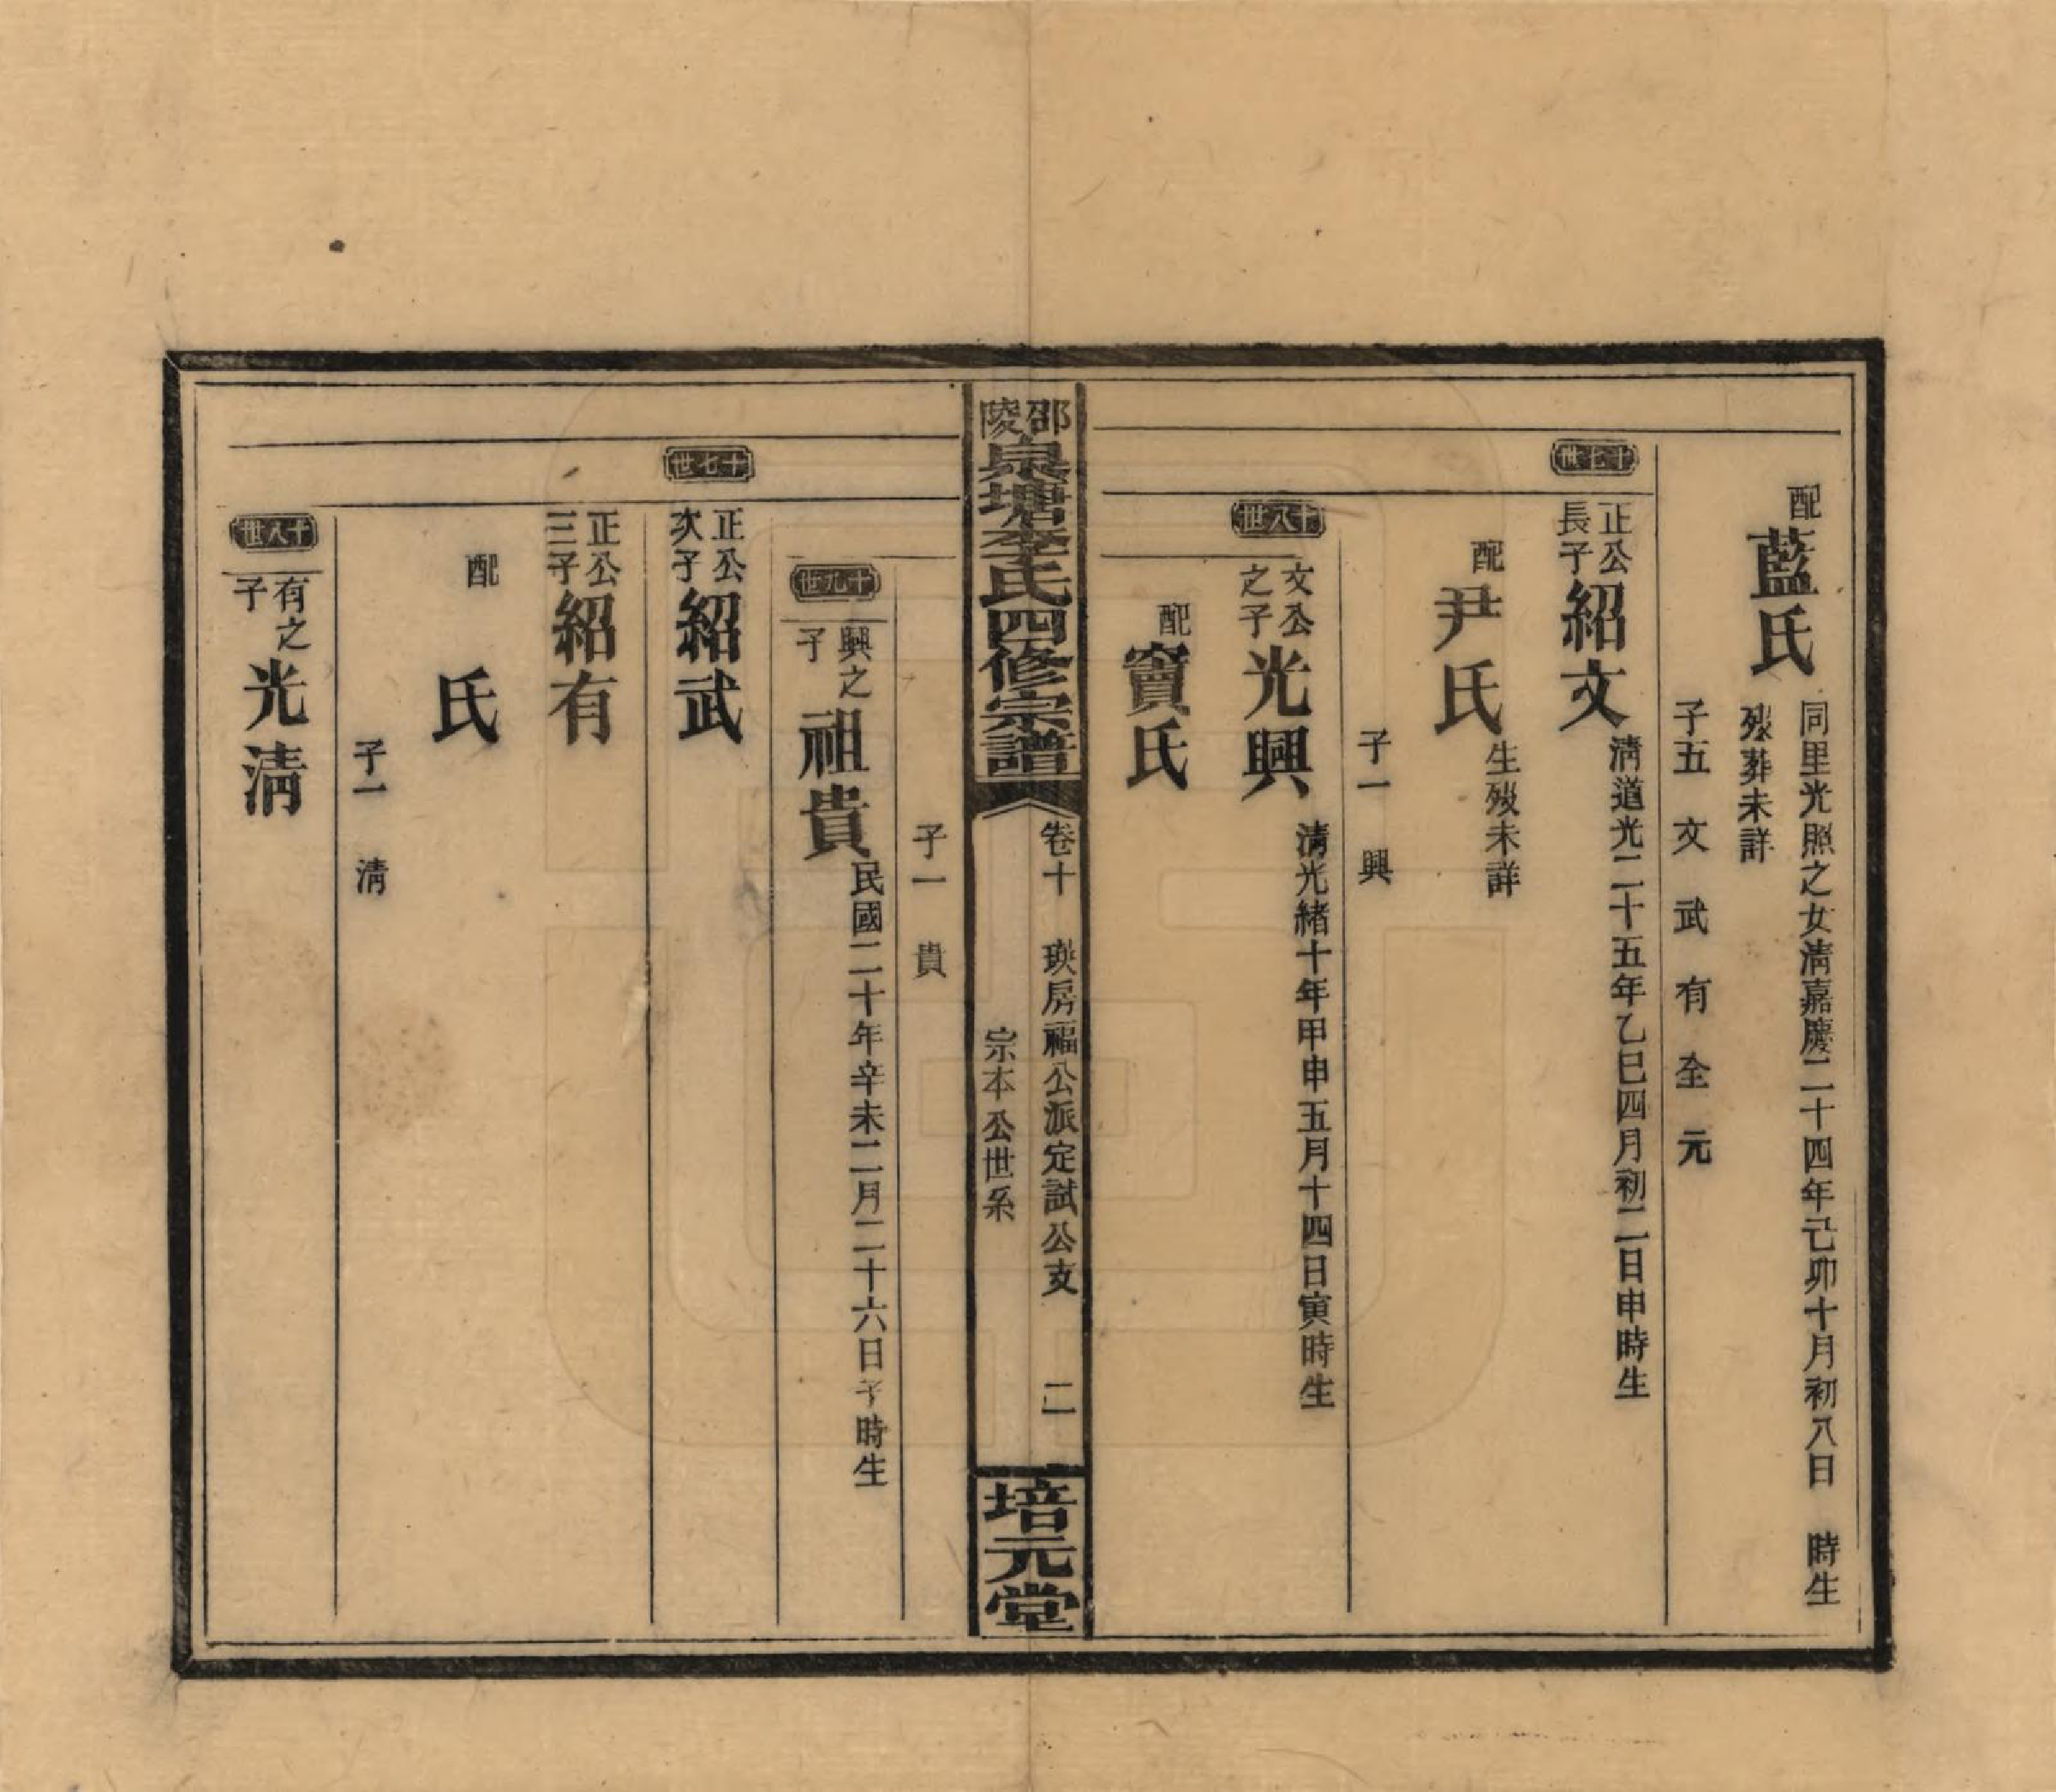 配藍氏
同里光照之女清嘉慶二十四年己卯十月初八日 時生
殁葬未詳
子五 文 武 有 全 元
十七世
正公長子紹文
清道光二十五年乙巳四月初二日申時生
配尹氏
生殁未詳
子一 興
十八世
文公之子光興
清光緒十年甲申五月十四日寅時生
配竇氏
邵陵泉塘李氏四修宗譜
卷十 瑛房福公派定試公支 二
宗本公世系
培元堂
子一 貴
十九世
興之子祖貴
民國二十年辛未二月二十六日子時生
十七世
正公次子紹武
正公三子紹有
配 氏
子一 清
十八世
有之子光清